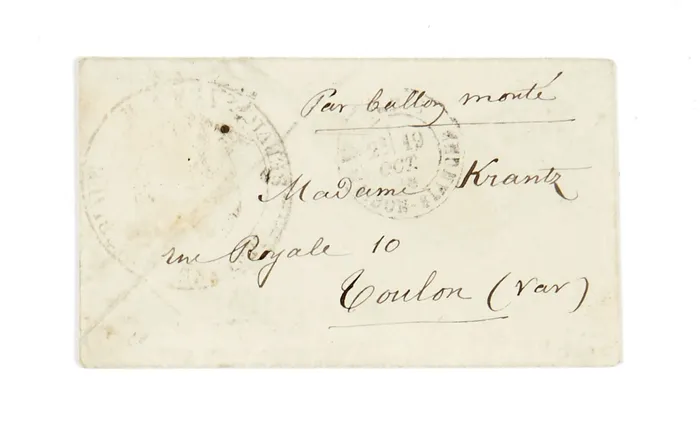 Par ballon monté
19
OCT.
Madame Krantz
rue Royale 10
Toulon (Var)